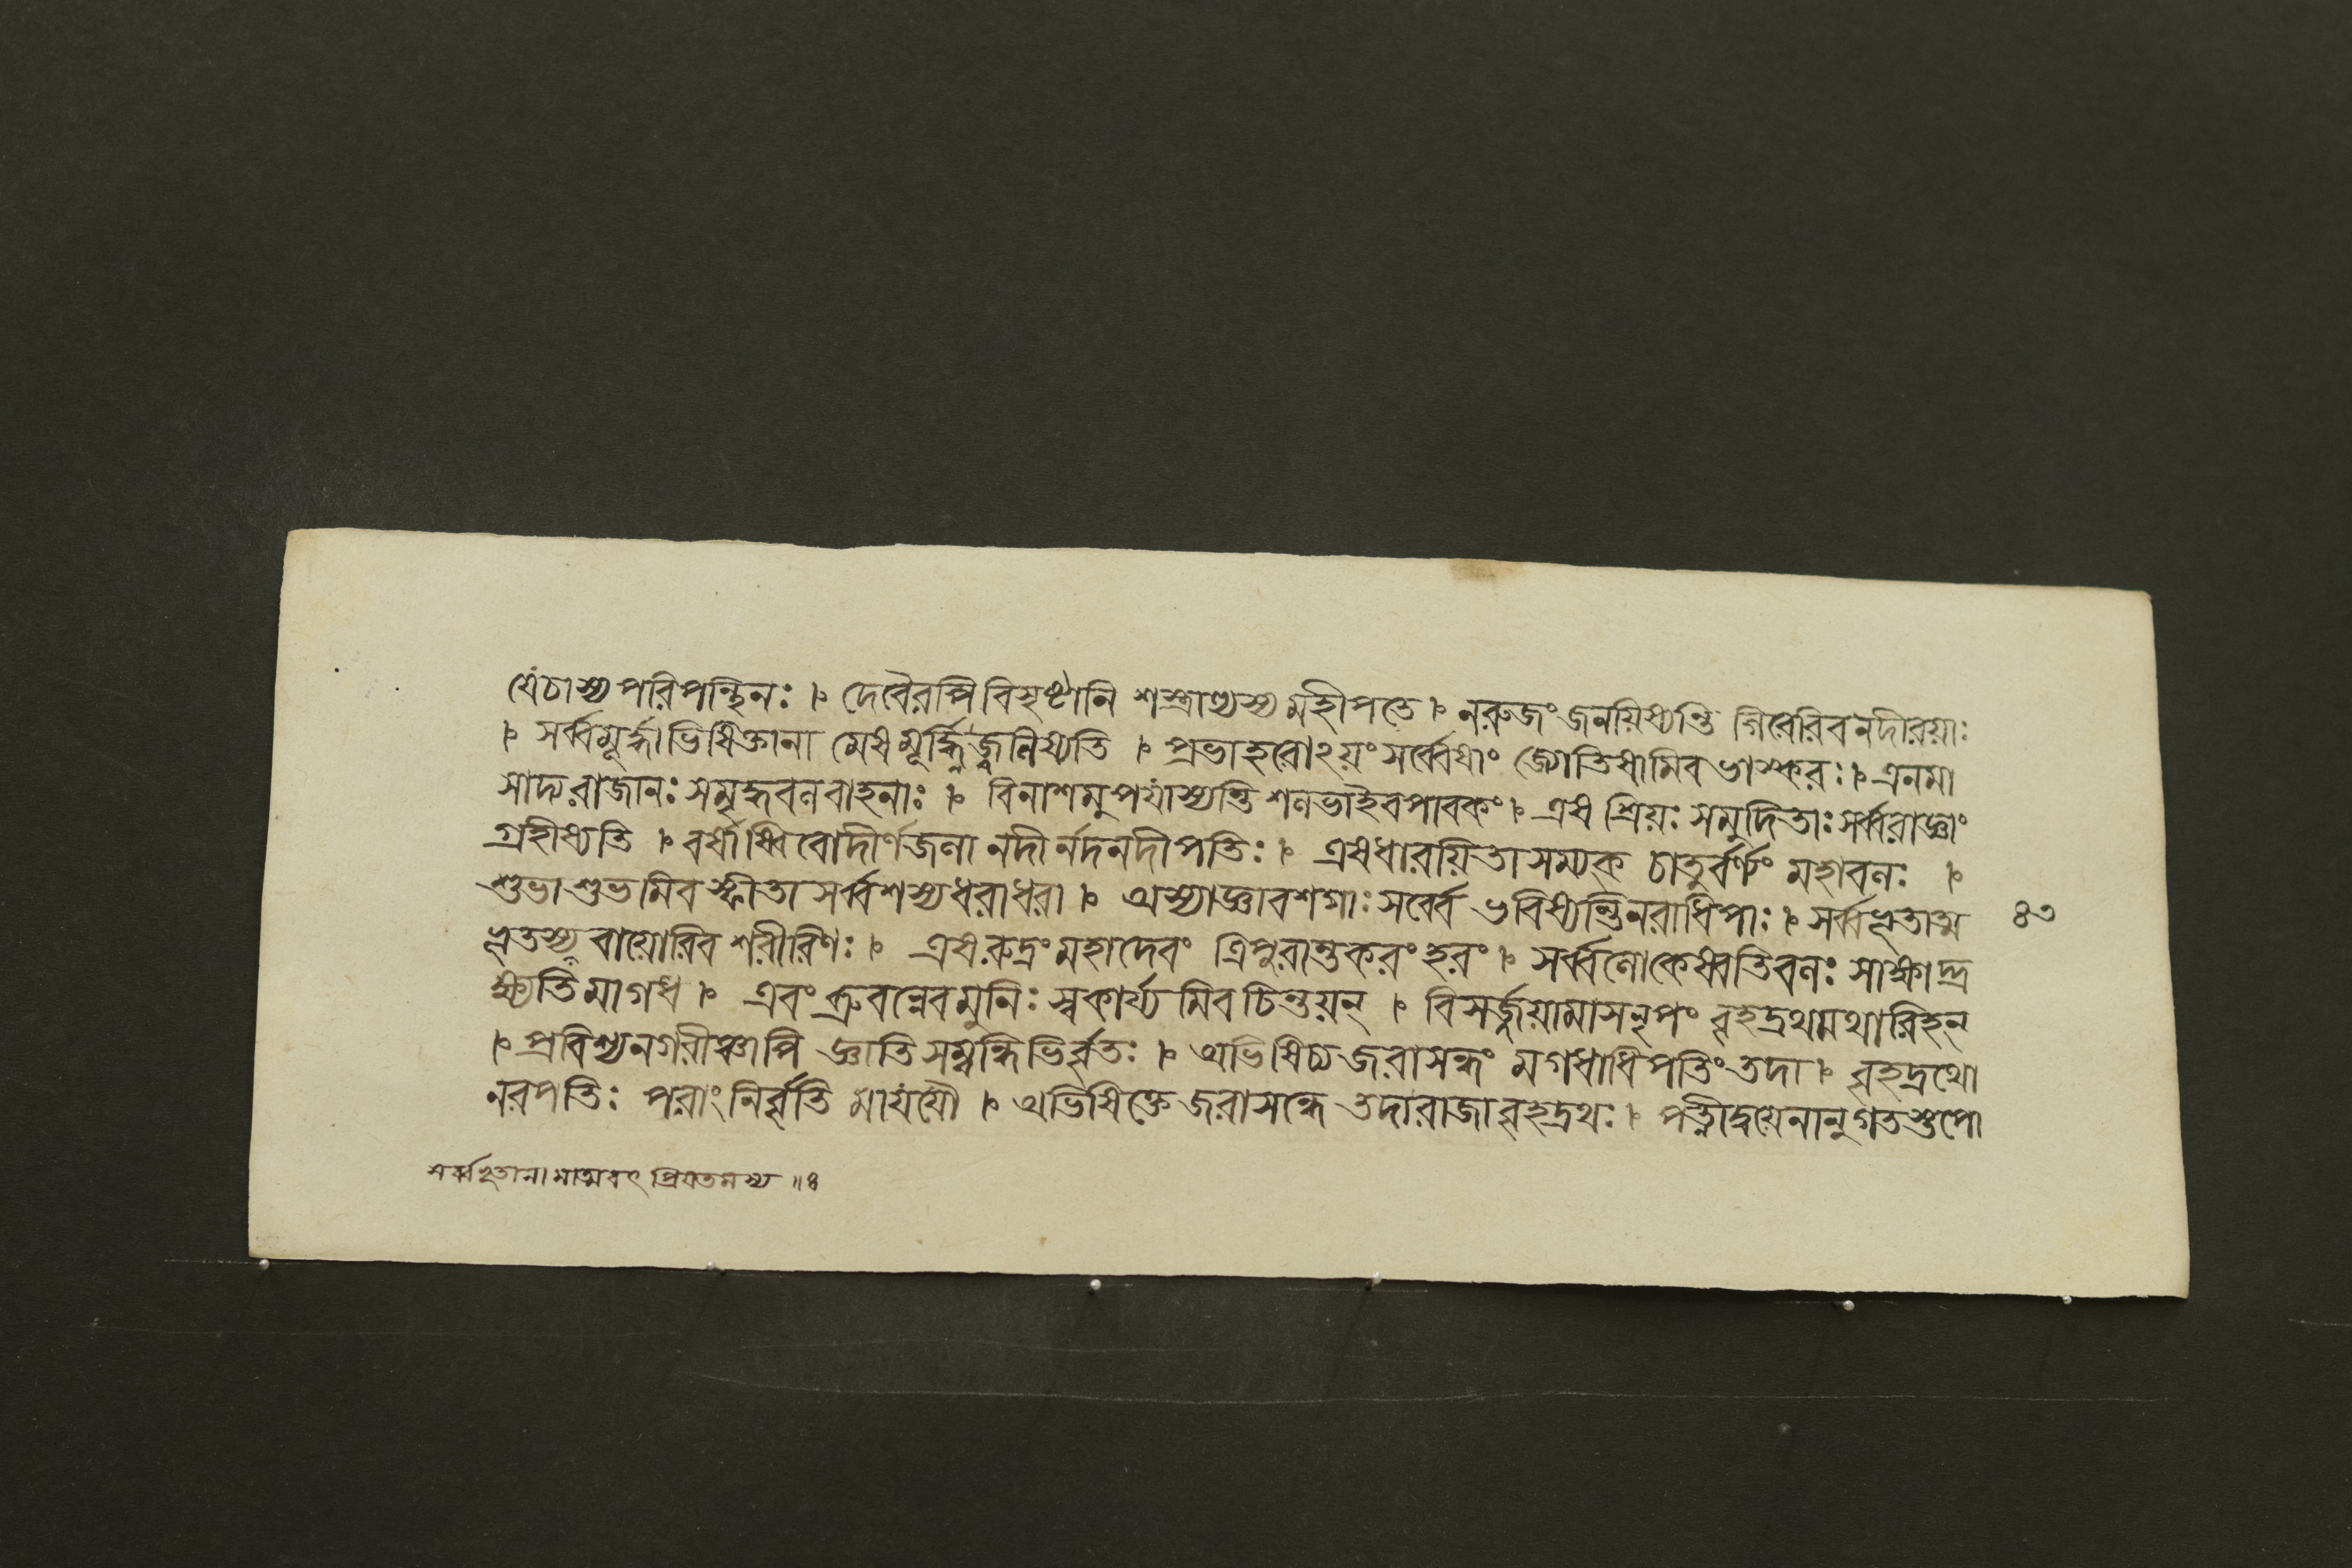 যেচাস্য পরিপন্থিনঃ । দেবৈরপি বিসৃষ্টানি শস্ত্রাণ্যস্য মহীপতে । নরুজং জনয়িষ্যন্তি গিরেরিব নদীরয়াঃ
। সর্ব্বমূর্দ্ধাভিষিক্তানা মেষ মূর্দ্ধ্নি জ্বলিষ্যতি । প্রভাহরোঽয়ং সর্ব্বেষাং জ্যোতিষামিব ভাস্করঃ । এনমা
সাদ্য রাজানঃ সমৃদ্ধবলবাহনাঃ । বিনাশমুপযাস্যন্তি শলভাইব পাবকং । এষ শ্রিয়ঃ সমুদিতাঃ সর্ব্বরাজ্ঞাং
গ্রহীষ্যতি । বর্ষাস্বিবোদীর্ণজলা নদীর্নদনদীপতিঃ । এষ ধারয়িতা সম্যক্ চাতুর্ব্বর্ণ্যং মহাবলঃ ।
শুভাশুভমিব স্ফীতা সর্ব্বশস্যধরাধরা । অস্যাজ্ঞাবশগাঃ সর্ব্বে ভবিষ্যন্তি নরাধিপাঃ । সর্ব্বভূতাত্ম ৪৩
ভূতস্য বায়োরিব শরীরিণঃ । এষ রুদ্রং মহাদেবং ত্রিপুরান্তকরং হরং । সর্ব্বলোকেষ্বতিবলঃ সাক্ষাদ্দ্র
ক্ষ্যতি মাগধ । এবং ব্রুবন্নেব মুনিঃ স্বকার্য্যমিব চিন্তয়ন্ । বিসর্জ্জয়ামাস নৃপং বৃহদ্রথমথারিহন্
। প্রবিশ্য নগরীঞ্চাপি জ্ঞাতিসম্বন্ধিভির্বৃতঃ । অভিষিচ্য জরাসন্ধং মগধাধিপতিং তদা । বৃহদ্রথো
নরপতিঃ পরাং নির্বৃতিমাযযৌ । অভিষিক্তে জরাসন্ধে তদা রাজা বৃহদ্রথঃ । পত্নীদ্বয়েনানুগতস্তপো
সর্ব্বভূতানামাত্মবৎ প্রিয়তমস্য ॥৪